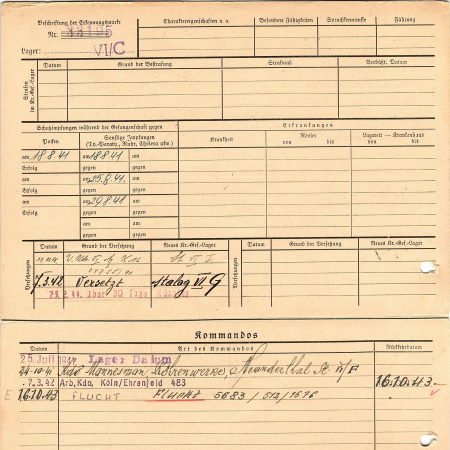 Beschriftung der Erkennungsmarke
Nr.
Lager: VI/C
Charaktereigenschaften u. a.
Besondere Fähigkeiten
Sprachkenntnisse
Führung
Strafen im Kr.-Gef.-Lager
Datum
Grund der Bestrafung
Strafmaß
Verbüßt, Datum
Schutzimpfungen während der Gefangenschaft gegen
Pocken
Sonstige Impfungen
(Ty.-Paratyp., Ruhr, Cholera usw.)
Erkrankungen
Krankheit
Revier
von bis
Lazarett — Krankenhaus
von bis
am 18.8.41 am 18.8.41
Erfolg gegen
am am 25.8.41.
Erfolg gegen
am am 29.8.41
Erfolg gegen
am
gegen
am
gegen
Versetzungen
Datum
Grund der Versetzung
Neues Kr.-Gef.-Lager
Versetzungen
Datum
Grund der Versetzung
Neues Kr.-Gef.-Lager
7.3.42 Versetzt Stalag VI G
Kommandos
Datum
Art des Kommandos
Rückkehrdatum
25. Juli Lager Datum
24.10.41 Kdo Mannesman, Röhrenwerke, Neanderthal
7.3.42 Arb.Kdo. Köln/Ehrenfeld 483 16.10.43
E 16.10.43 FLUCHT Flucht 5683 / 513/1596